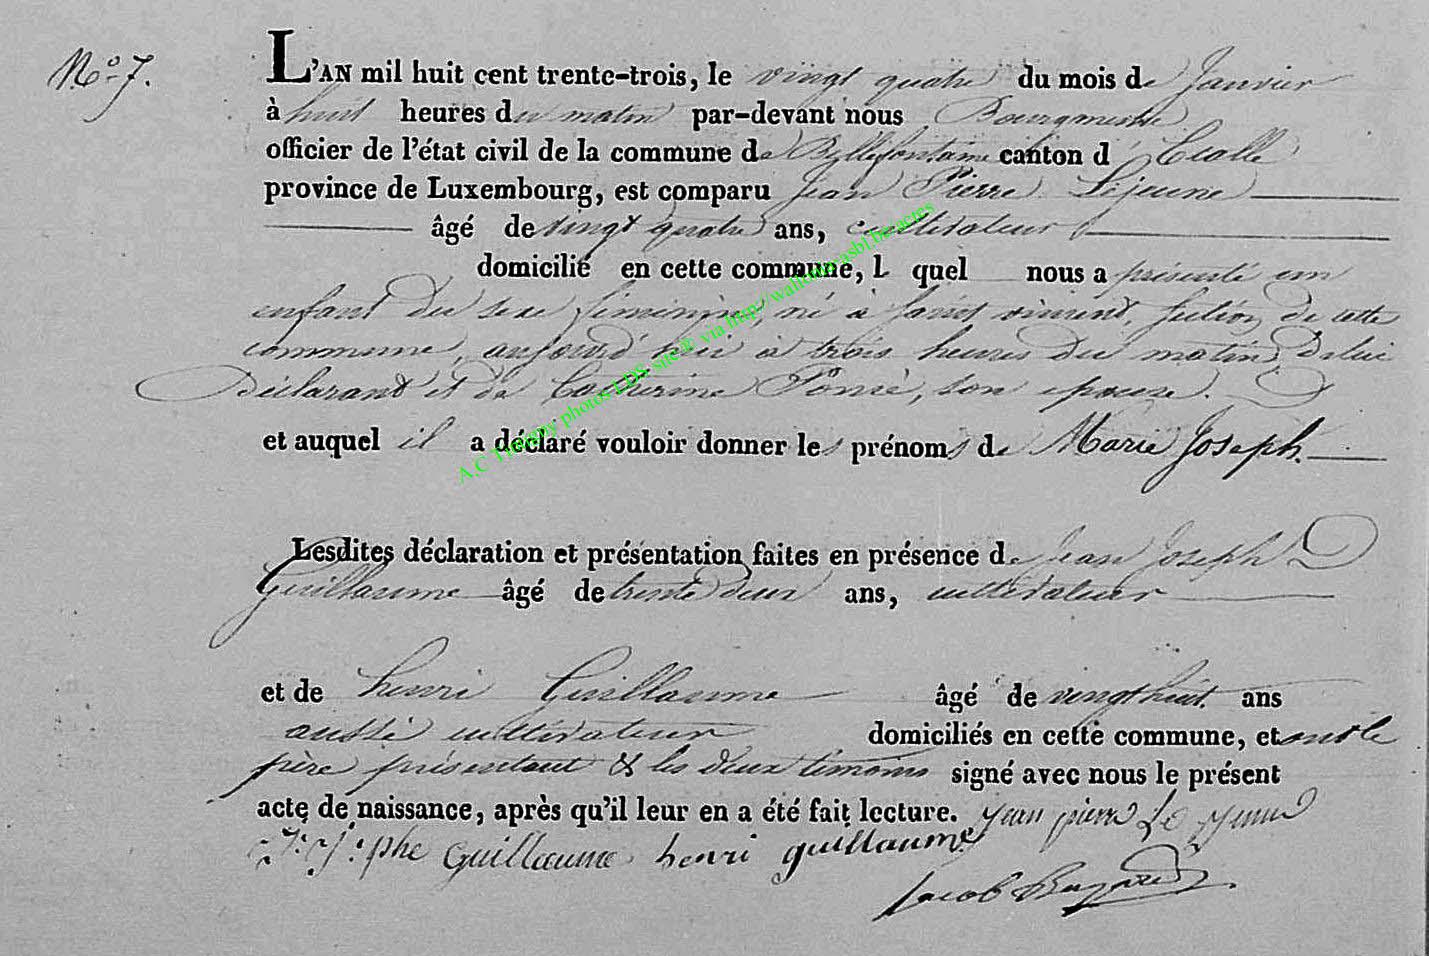 N.o 7.
L'AN mil huit cent trente-trois, le vingt quatre du mois de Janvier
à huit heures du matin par-devant nous Bourgmestre
officier de l'état civil de la commune de Bellefontaine canton d' Etalle
province de Luxembourg, est comparu Jean Pierre Lejeune
âgé de vingt quatre ans, cultivateur
domicilié en cette commune, l quel nous a présenté un
enfant du sexe féminin, né à saint vincent, section de cette
commune, aujourd'hui à trois heures du matin, de lui
Déclarant et de Catherine Poncé, son épouse.
et auquel il a déclaré vouloir donner les prénoms de Marie Joseph.
Lesdites déclaration et présentation faites en présence de Jean Joseph
Guillaume âgé de trente deux ans, cultivateur
et de henri Guillaume âgé de vingt huit ans
aussi cultivateur domiciliés en cette commune, et ont le
père présentant & les deux témoins signé avec nous le présent
acte de naissance, après qu'il leur en a été fait lecture. jean pierre Le jeune
Guillaume henri guillaume
Jacob
A.C Tintigny photos LDS site © via http://wallonica-asbl.be/actes